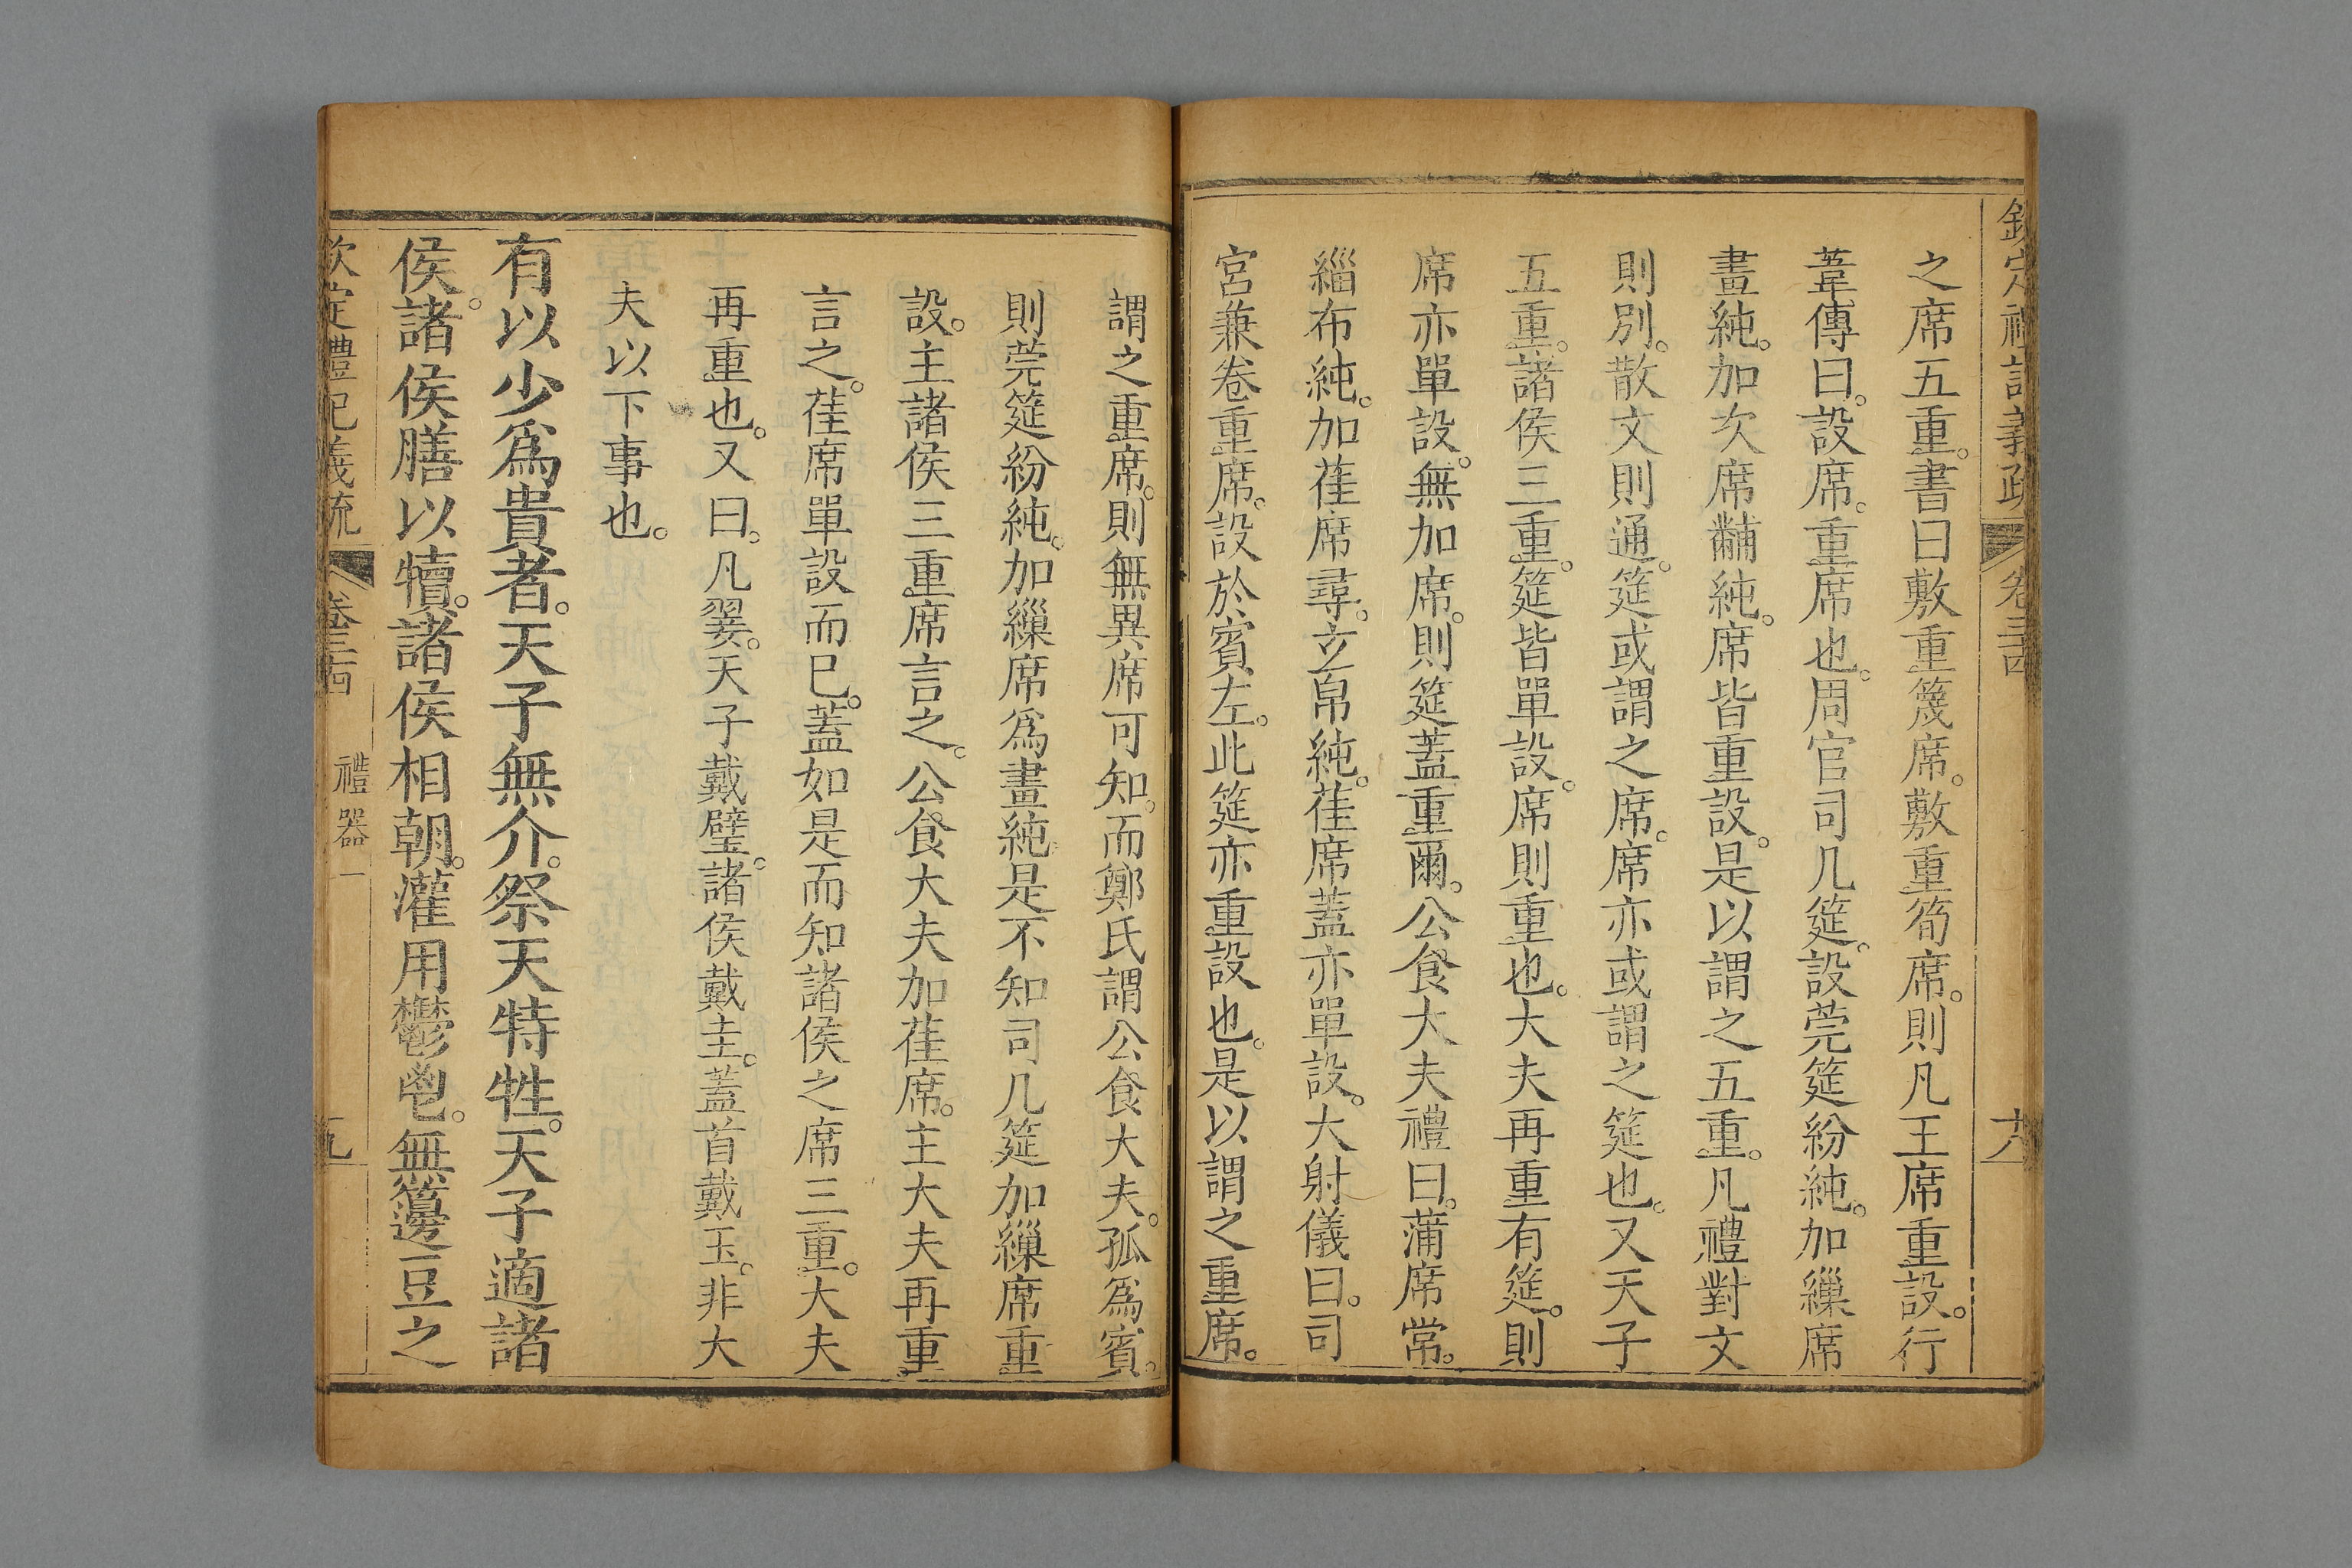 欽定禮記義疏 卷三十四 十八
之席五重。書曰敷重篾席。敷重筍席。則凡王席重設。行
葦傳曰。設席。重席也。周官司几筵。設莞筵紛純。加繅席
畫純。加次席黼純。席皆重設。是以謂之五重。凡禮對文
則別。散文則通。筵或謂之席。席亦或謂之筵也。又天子
五重。諸侯三重。筵皆單設。席則重也。大夫再重有筵。則
席亦單設。無加席。則筵蓋重爾。公食大夫禮曰。蒲席常。
緇布純。加萑席尋。玄帛純。萑席蓋亦單設。大射儀曰。司
宮兼卷重席。設於賓左。此筵亦重設也。是以謂之重席。
謂之重席。則無異席可知。而鄭氏謂公食大夫。孤為賓。
則莞筵紛純。加繅席為畫純。是不知司几筵加繅席重
設。主諸侯三重席言之。公食大夫加萑席。主大夫再重
言之。萑席單設而已。蓋如是而知諸侯之席三重。大夫
再重也。又曰。凡翣。天子戴璧。諸侯戴圭。蓋首戴玉。非大
夫以下事也。
有以少為貴者。天子無介。祭天特牲。天子適諸
侯。諸侯膳以犢。諸侯相朝。灌用鬱鬯。無籩豆之
欽定禮記義疏 卷三十四 禮器一 九